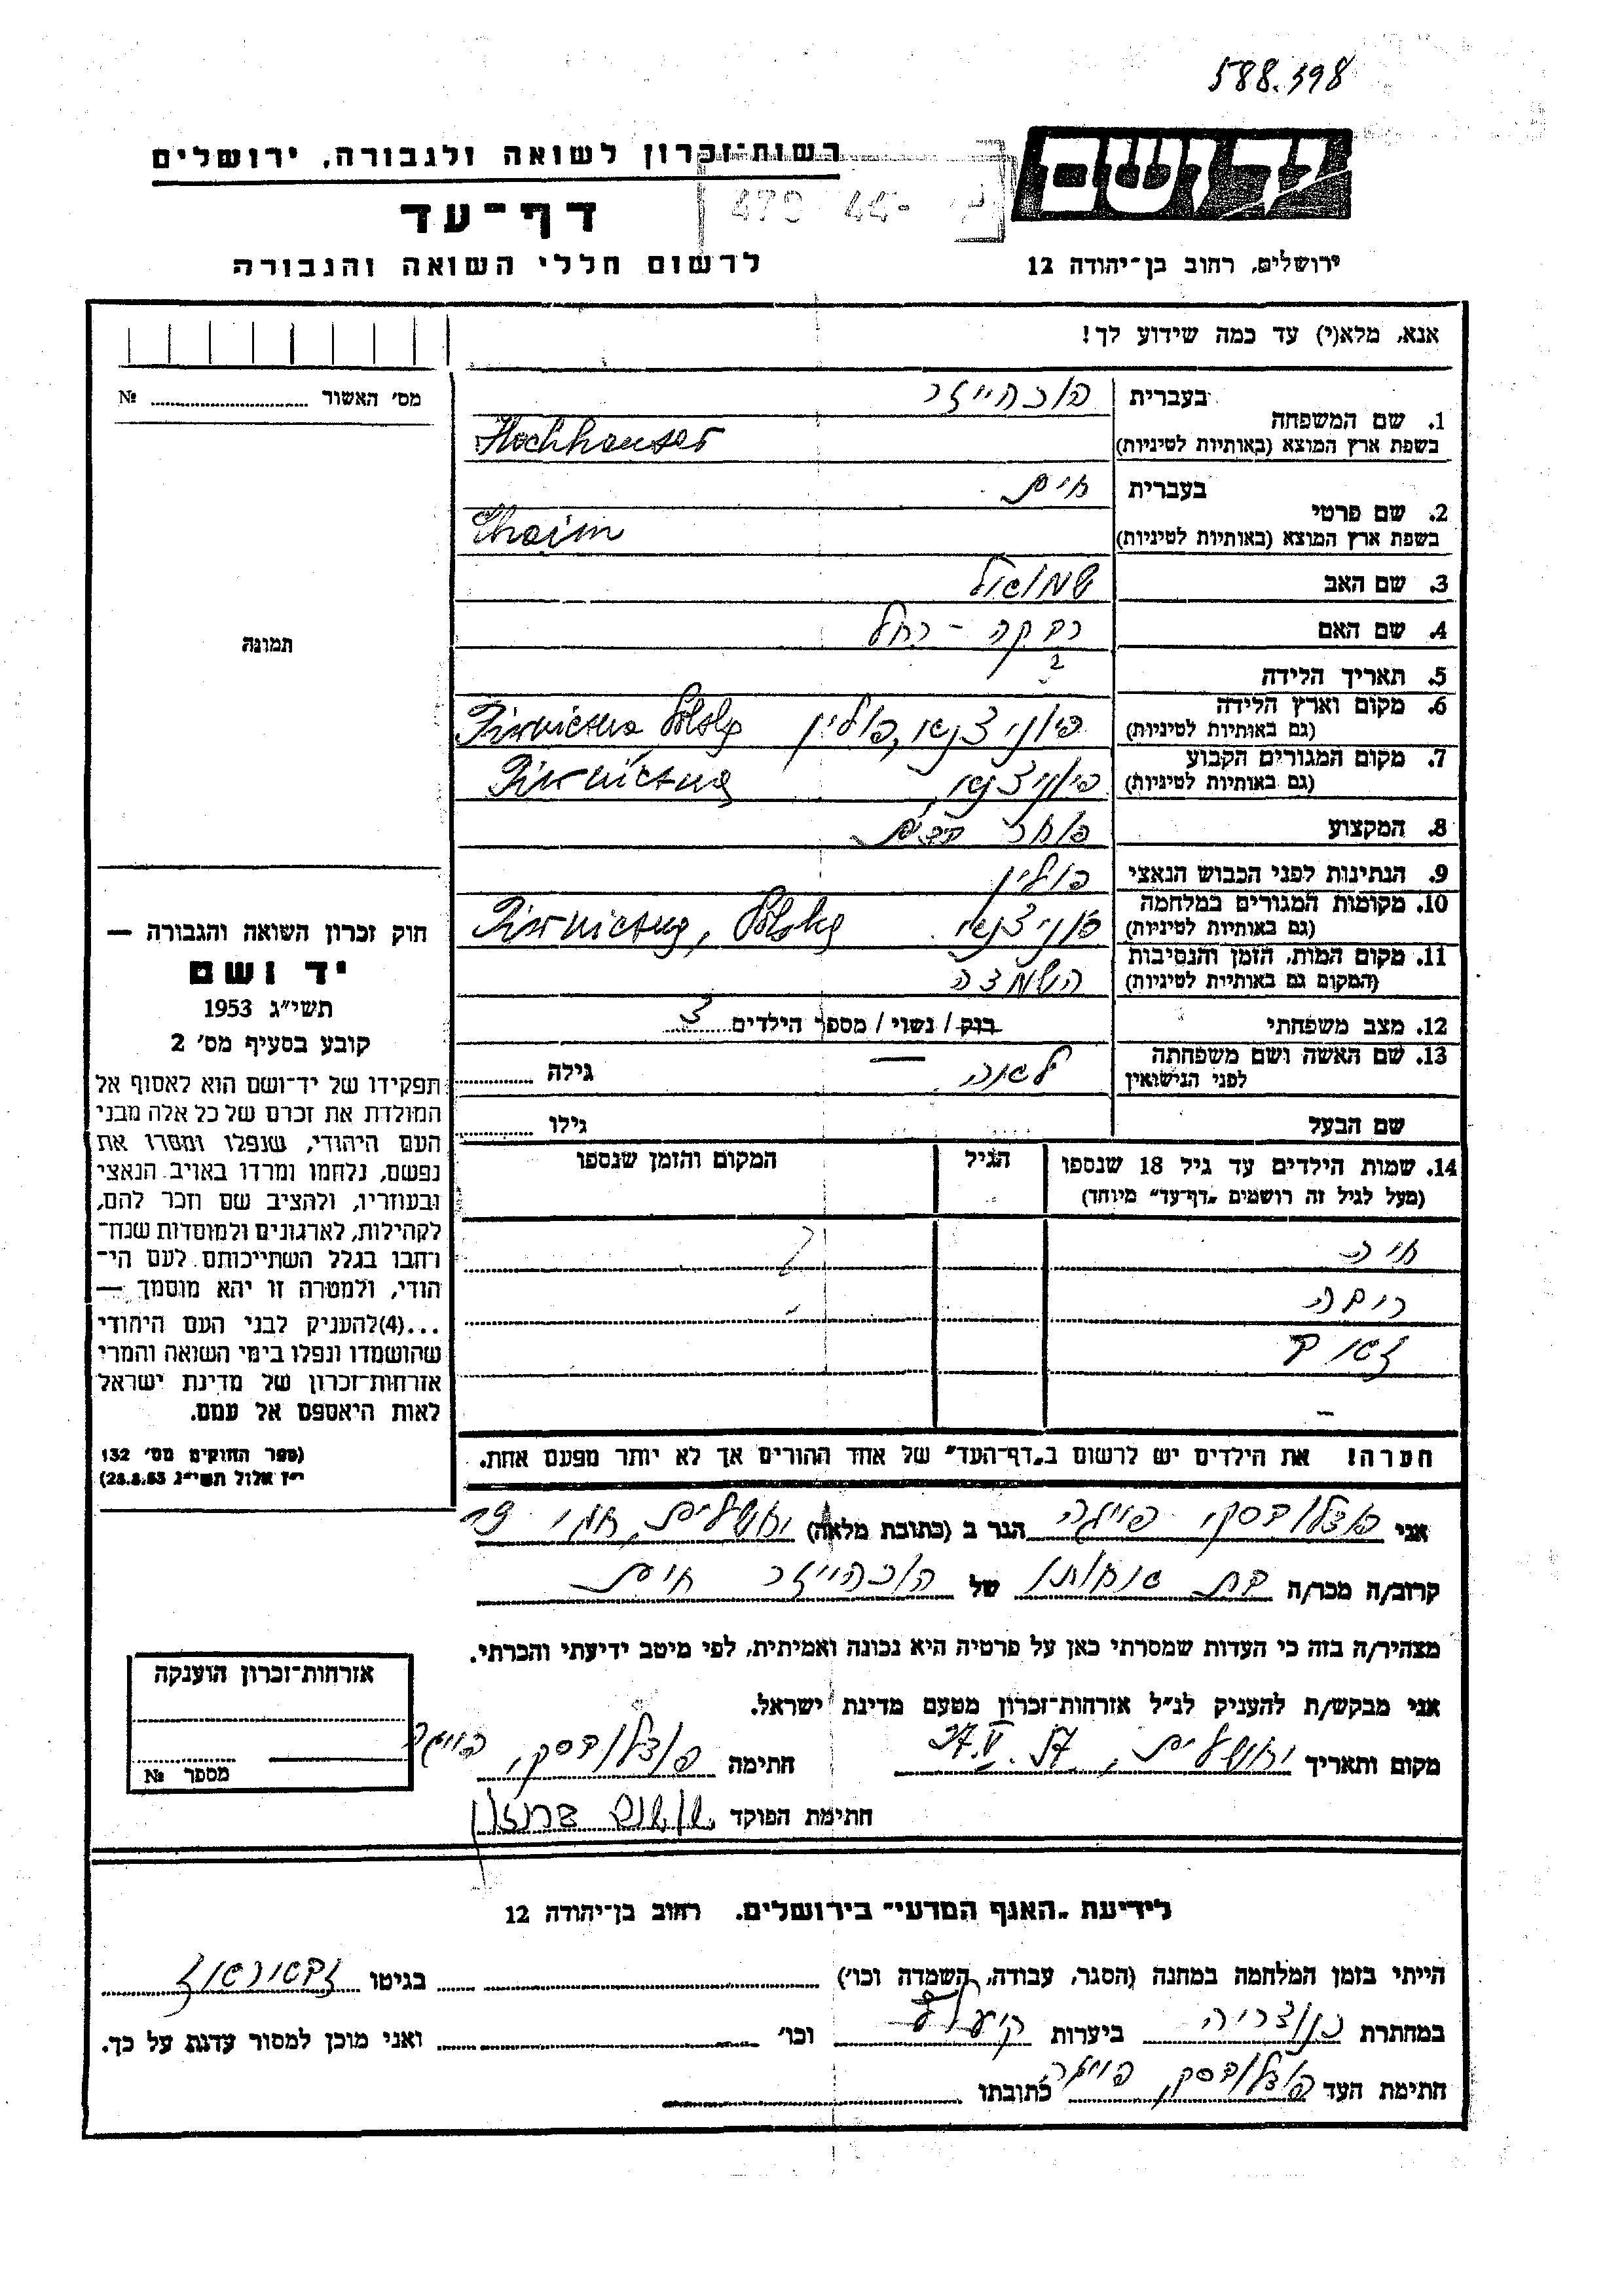 588.398
יד ושם
רשות־זכרון לשואה ולגבורה, ירושלים
479 44-
דף־עד
ירושלים, רחוב בן־יהודה 12
לרשום חללי השואה והגבורה
אנא, מלא(י) עד כמה שידוע לך!
מס' האשור № 
1. שם המשפחה בעברית הוכהייזר
בשפת ארץ המוצא (באותיות לטיניות) Hochhauser
2. שם פרטי בעברית חיים
בשפת ארץ המוצא (באותיות לטיניות) Chaim
3. שם האב שמואל
4. שם האם רבקה - רחל
תמונה
5. תאריך הלידה ?
6. מקום וארץ הלידה
(גם באותיות לטיניות) פולין Polska
7. מקום המגורים הקבוע
(גם באותיות לטיניות)
8. המקצוע סוחר
9. הנתינות לפני הכבוש הנאצי פולין
10. מקומות המגורים במלחמה
(גם באותיות לטיניות) Polska
11. מקום המות, הזמן והנסיבות
(המקום גם באותיות לטיניות) השמצה
12. מצב משפחתי רווק / נשוי / מספר הילדים 3
13. שם האשה ושם משפחתה
לפני הנישואין לאה — גילה
שם הבעל גילו
14. שמות הילדים עד גיל 18 שנספו
(מעל לגיל זה רושמים „דף־עד" מיוחד)
הגיל
המקום והזמן שנספו
חיה ?
חוק זכרון השואה והגבורה —
יד ושם
תשי"ג 1953
קובע בסעיף מס' 2
תפקידו של יד־ושם הוא לאסוף אל
המולדת את זכרם של כל אלה מבני
העם היהודי, שנפלו ומסרו את
נפשם, נלחמו ומרדו באויב הנאצי
ובעוזריו, ולהציב שם וזכר להם,
לקהילות, לארגונים ולמוסדות שנח־
רחבו בגלל השתייכותם לעם הי־
הודי, ולמטרה זו יהא מוסמך —
...(4) להעניק לבני העם היהודי
שהושמדו ונפלו בימי השואה והמרי
אזרחות־זכרון של מדינת ישראל
לאות היאספם אל עמם.
(ספר החוקים מס' 132
י"ז אלול תשי"ג 28.8.53)
הערה! את הילדים יש לרשום ב„דף־העד" של אחד ההורים אך לא יותר מפעם אחת.
אני הגר ב (כתובת מלאה) ירושלים,
קרוב/ה מכר/ה בת אחותו של הוכהייזר חיים
מצהיר/ה בזה כי העדות שמסרתי כאן על פרטיה היא נכונה ואמיתית, לפי מיטב ידיעתי והכרתי.
אני מבקש/ת להעניק לנ"ל אזרחות־זכרון מטעם מדינת ישראל.
מקום ותאריך ירושלים, 27.V.57 חתימה
חתימת הפוקד
אזרחות־זכרון הוענקה
מספר №
לידיעת „האגף המדעי" בירושלים. רחוב בן־יהודה 12
הייתי בזמן המלחמה במחנה (הסגר, עבודה, השמדה וכו') בגיטו
במחתרת ביערות וכו' ואני מוכן למסור עדות על כך.
חתימת העד כתובתו